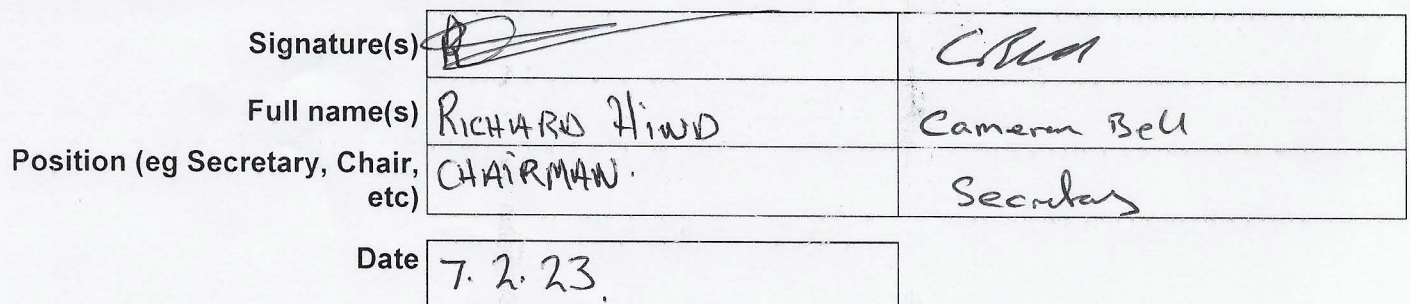 Signature(s) CBell
Full name(s) RICHARD HIND Cameron Bell
Position (eg Secretary, Chair, etc) CHAIRMAN. Secretary
Date 7.2.23.